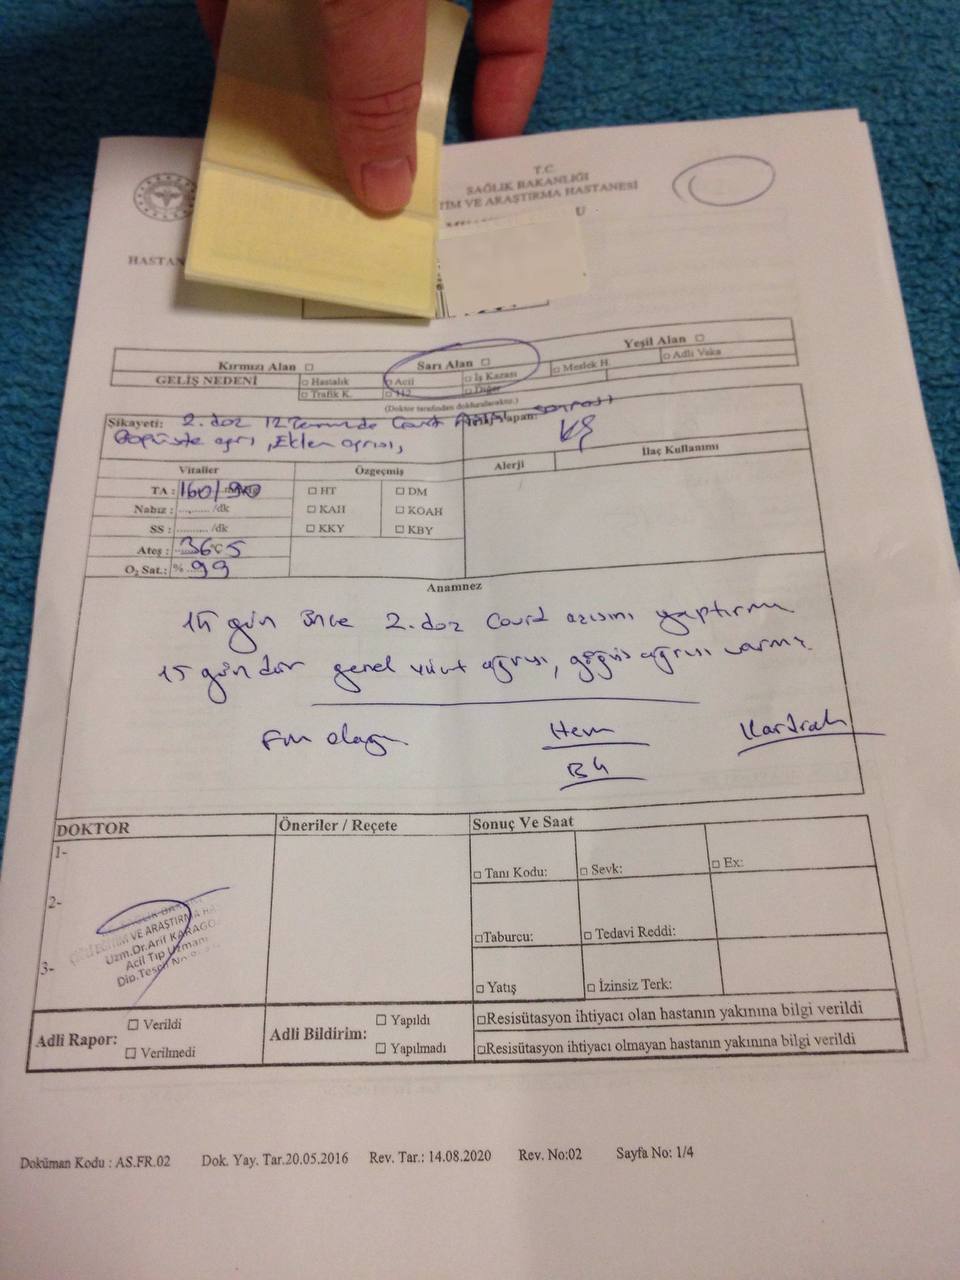 T.C.
SAĞLIK BAKANLIĞI
TİM VE ARAŞTIRMA HASTANESİ
U
HASTAN
Kırmızı Alan □ Sarı Alan □ Yeşil Alan □
GELİŞ NEDENİ □ Hastalık □ Acil □ İş Kazası □ Meslek H. □ Adli Vaka
□ Trafik K. □ 112 □ Diğer
(Doktor tarafından doldurulacaktır.)
Şikayeti: 2. doz 12 Temmuzda Covid sonrası
Göğüste ağrı, Eklem ağrısı,
Vitaller Özgeçmiş Alerji İlaç Kullanımı
TA : 160/90 □ HT □ DM
Nabız : ......... /dk □ KAH □ KOAH
SS : ......... /dk □ KKY □ KBY
Ateş : 36°C 5
O₂ Sat.: % 99
Anamnez
2. doz Covid aşısını yaptırmış
15 gündür genel vücut ağrısı, göğüs ağrısı varmış.
FM olağan Hem
DOKTOR Öneriler / Reçete Sonuç Ve Saat
1-
□ Tanı Kodu: □ Sevk: □ Ex:
2-
EĞİTİM VE ARAŞTIRMA HAS
Uzm.Dr.Arif KARAGÖ
Acil Tıp Uzmanı
Dip.Tescil No
□Taburcu: □ Tedavi Reddi:
3-
□ Yatış □ İzinsiz Terk:
Adli Rapor: □ Verildi □ Verilmedi
Adli Bildirim: □ Yapıldı □ Yapılmadı
□Resisütasyon ihtiyacı olan hastanın yakınına bilgi verildi
□Resisütasyon ihtiyacı olmayan hastanın yakınına bilgi verildi
Doküman Kodu : AS.FR.02 Dok. Yay. Tar.20.05.2016 Rev. Tar.: 14.08.2020 Rev. No:02 Sayfa No: 1/4